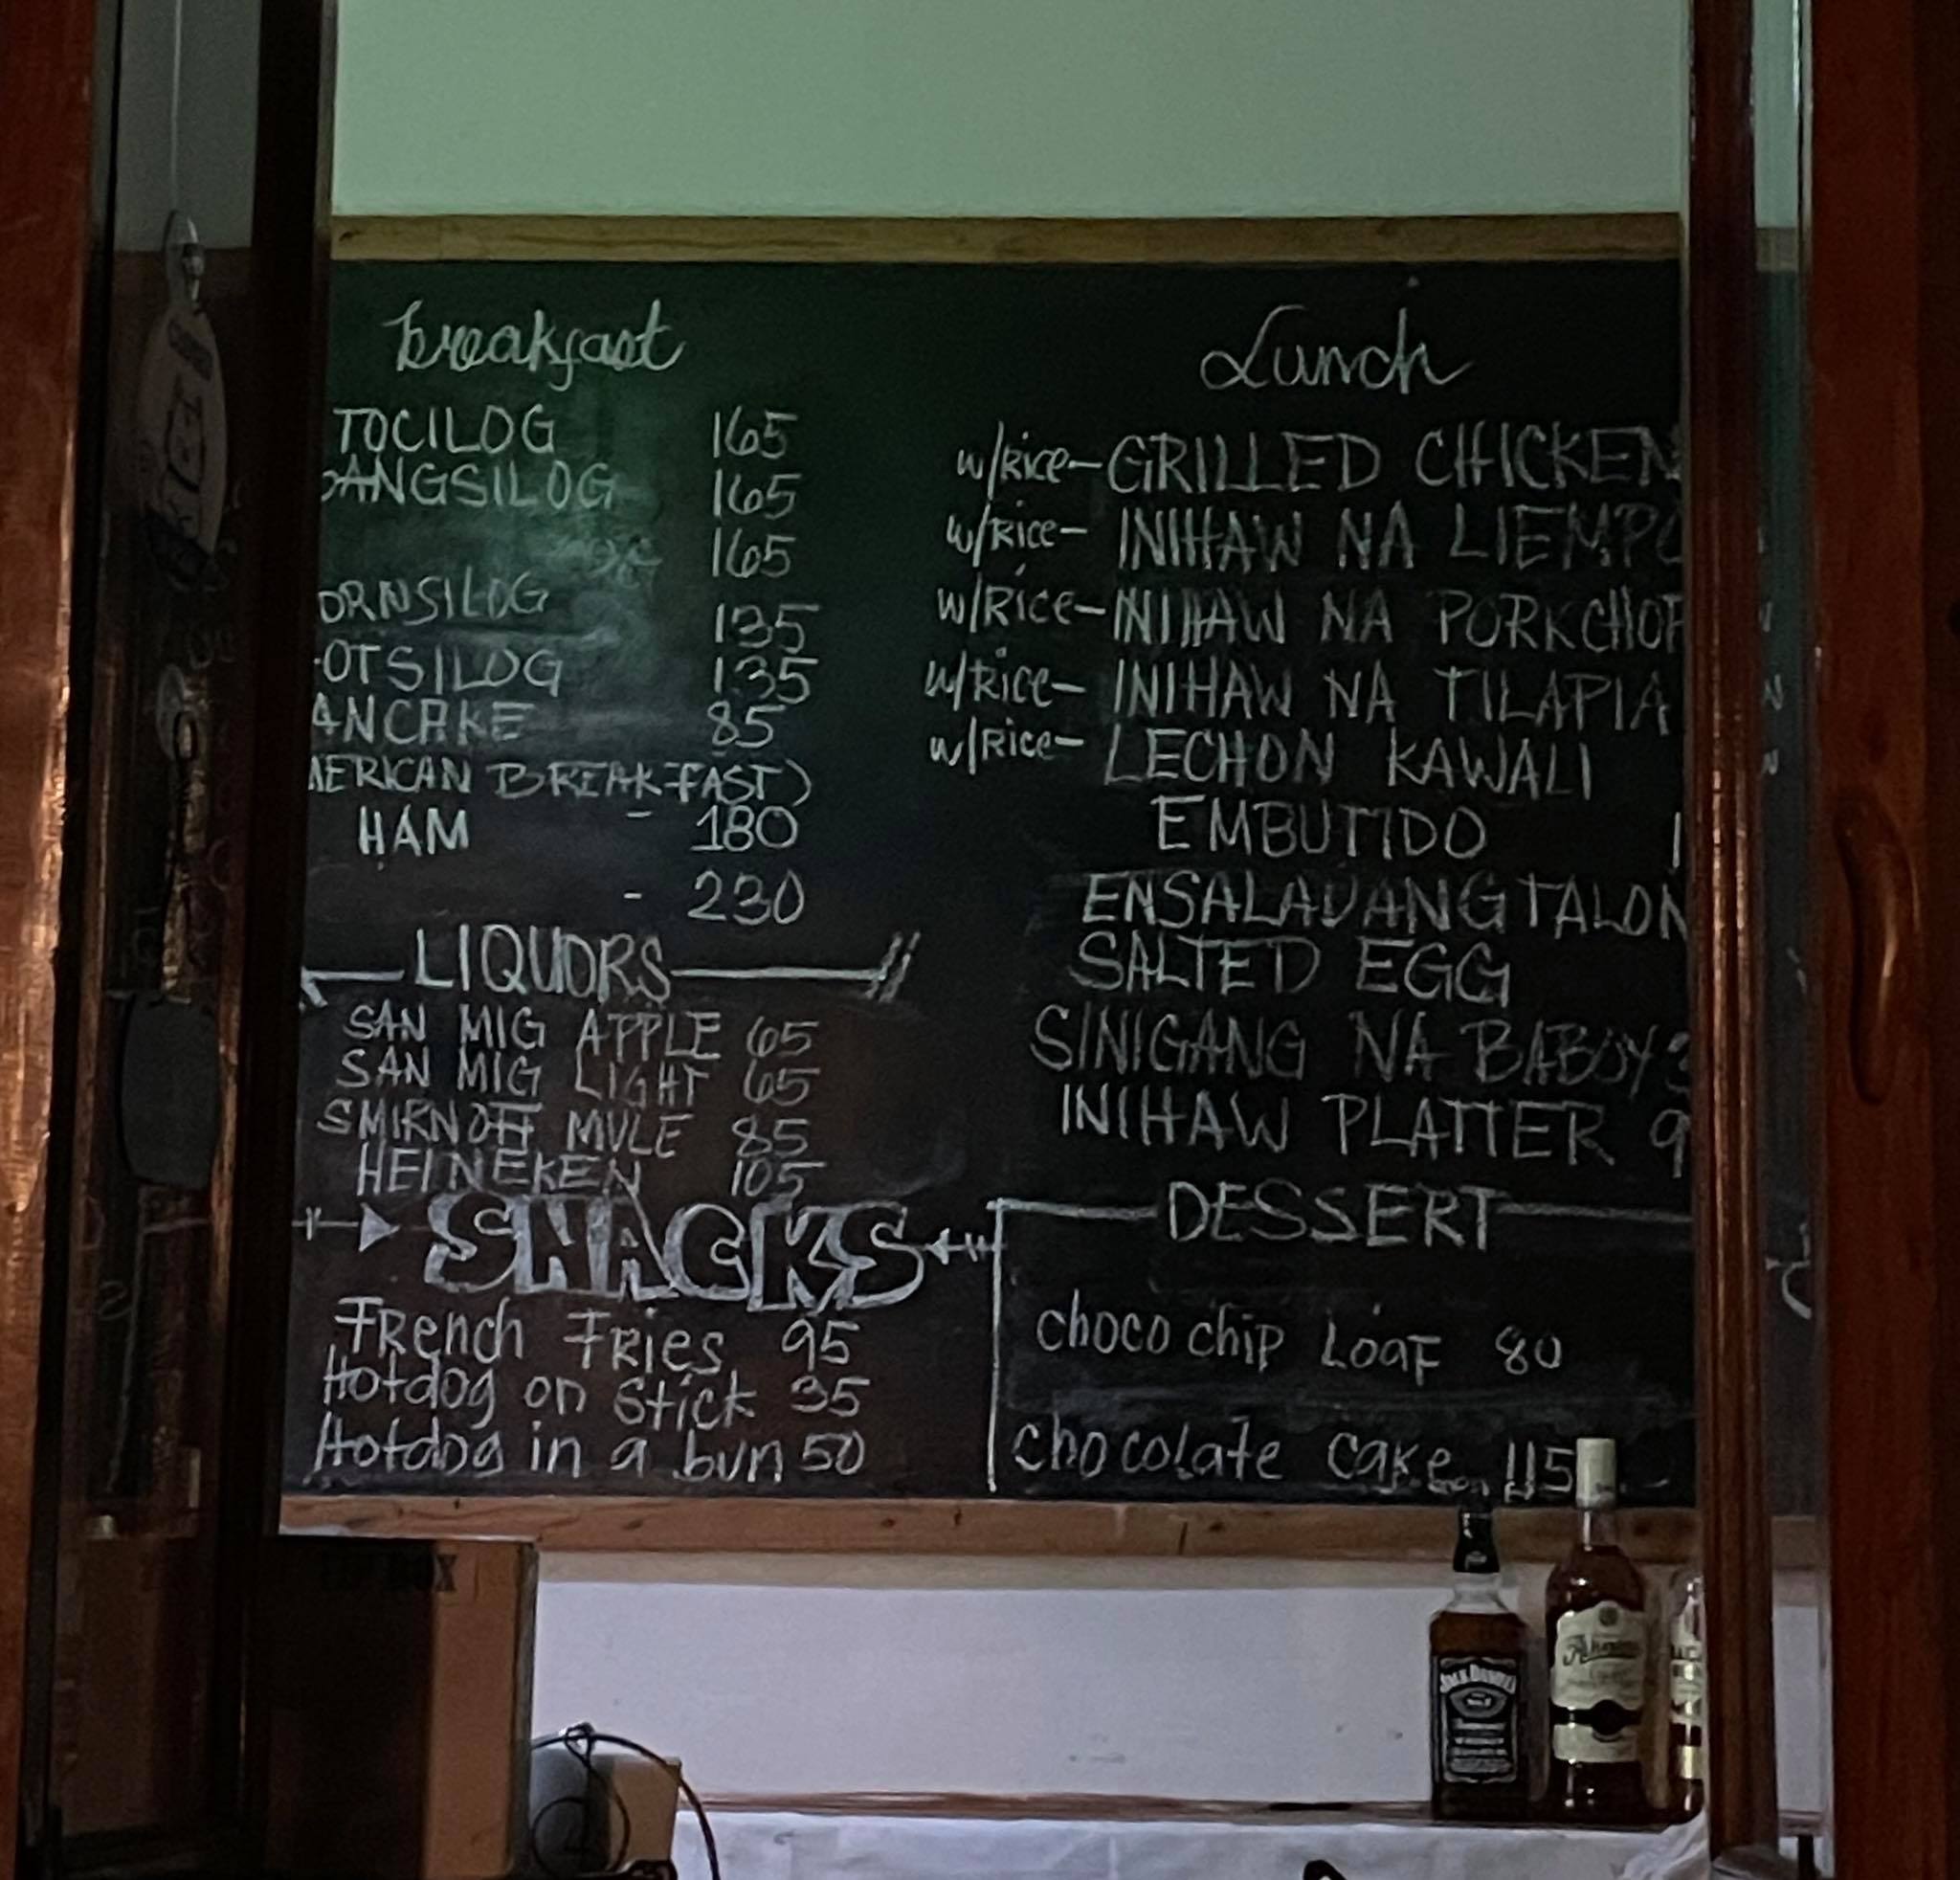 breakfast
TOCILOG 165
ANGSILOG 165
165
ORNSILOG 135
OTSILOG 135
ANCAKE 85
MERICAN BREAKFAST)
HAM - 180
- 230
LIQUORS
SAN MIG APPLE 65
SAN MIG LIGHT 65
SMIRNOFF MULE 85
HEINEKEN 105
SNACKS
French Fries 95
Hotdog on Stick 35
Hotdog in a bun 50
Lunch
w/Rice- GRILLED CHICKEN
w/Rice- INIHAW NA LIEMPO
w/Rice- INIHAW NA PORKCHOP
w/Rice- INIHAW NA TILAPIA
w/Rice- LECHON KAWALI
EMBUTIDO 1
ENSALADANG TALON
SALTED EGG
SINIGANG NA BABOY 3
INIHAW PLATTER 9
DESSERT
choco chip Loaf 80
chocolate cake 115
JACK DANIEL'S